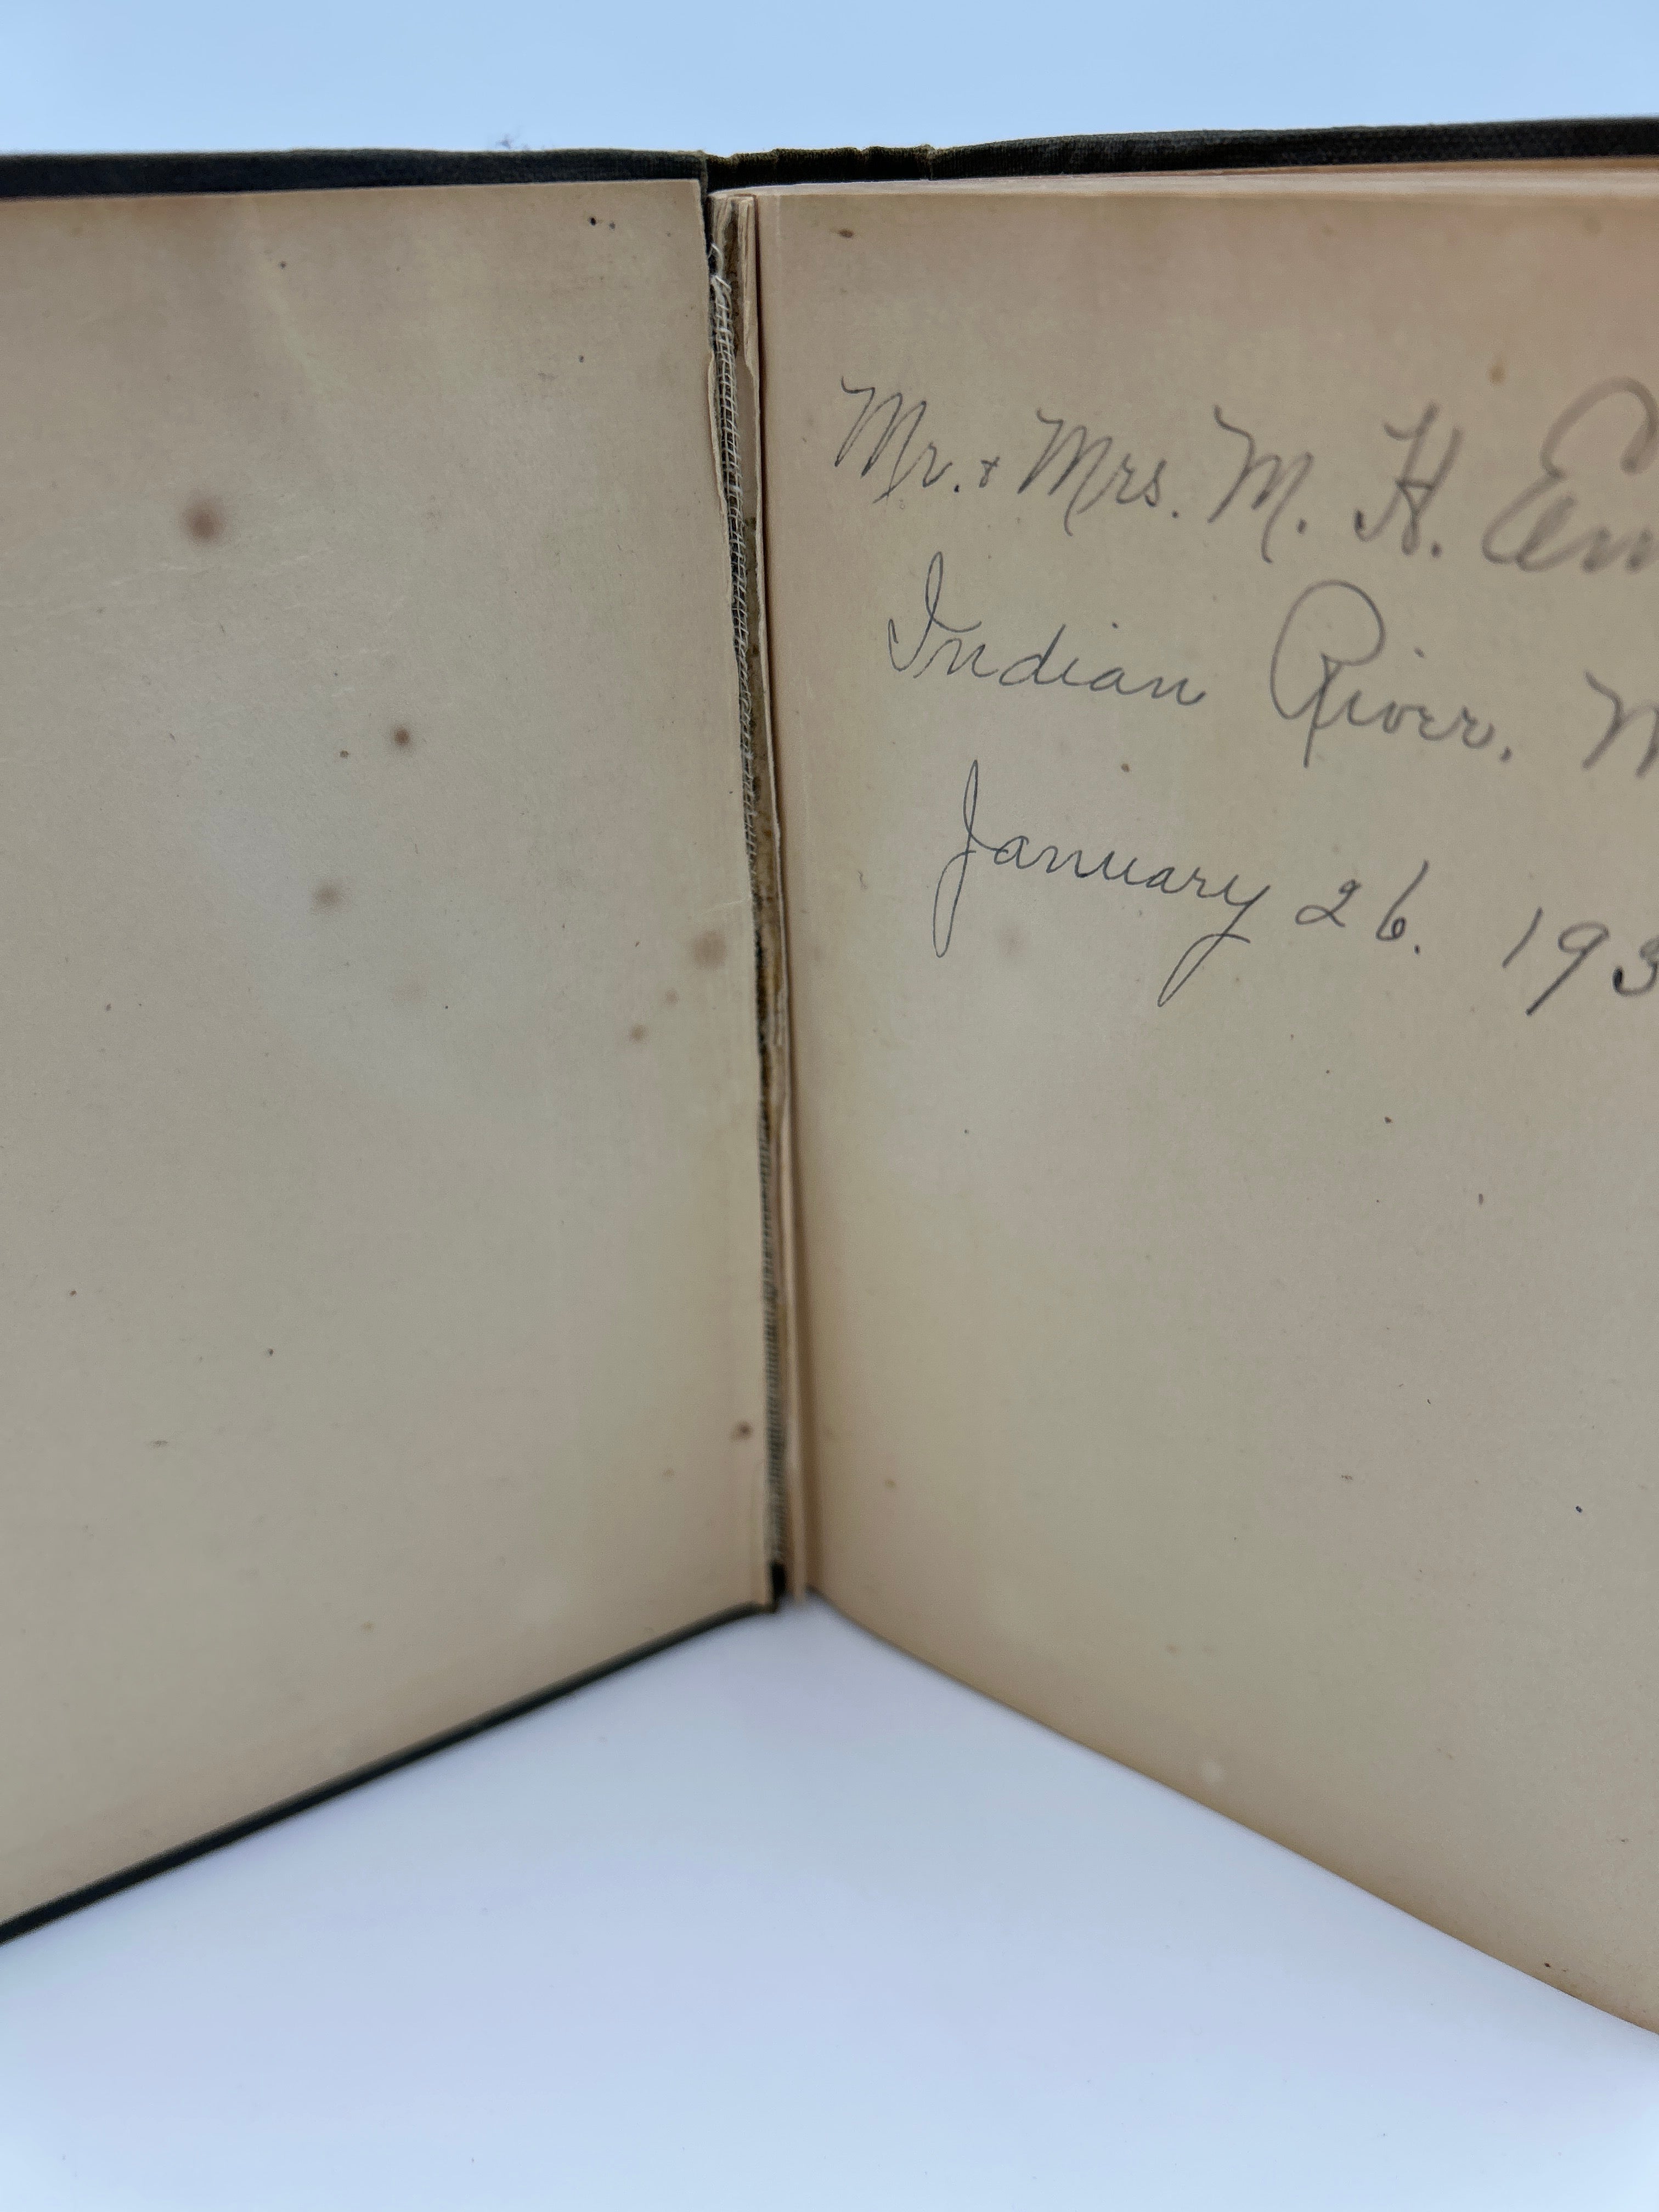 Mr. & Mrs. M. H.
Indian River,
January 26. 193